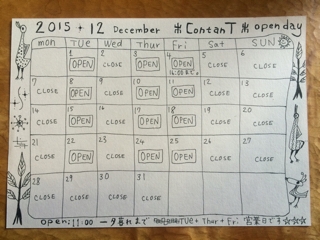 2015・12 December ＊ContanT＊ open day
mon TUE Wed Thur Fri Sat SUN
1 2 3 4 5 6
OPEN CLOSE OPEN OPEN CLOSE CLOSE
16:00まで。
7 8 9 10 11 12 13
CLOSE OPEN CLOSE OPEN OPEN CLOSE CLOSE
14 15 16 17 18 19 20
CLOSE OPEN CLOSE OPEN OPEN CLOSE CLOSE
21 22 23 24 25 26 27
CLOSE OPEN CLOSE OPEN CLOSE CLOSE CLOSE
28 29 30 31
CLOSE CLOSE CLOSE CLOSE
open:11:00 ー夕暮れまで TUe + Thur + Fri 営業日です☆☆☆